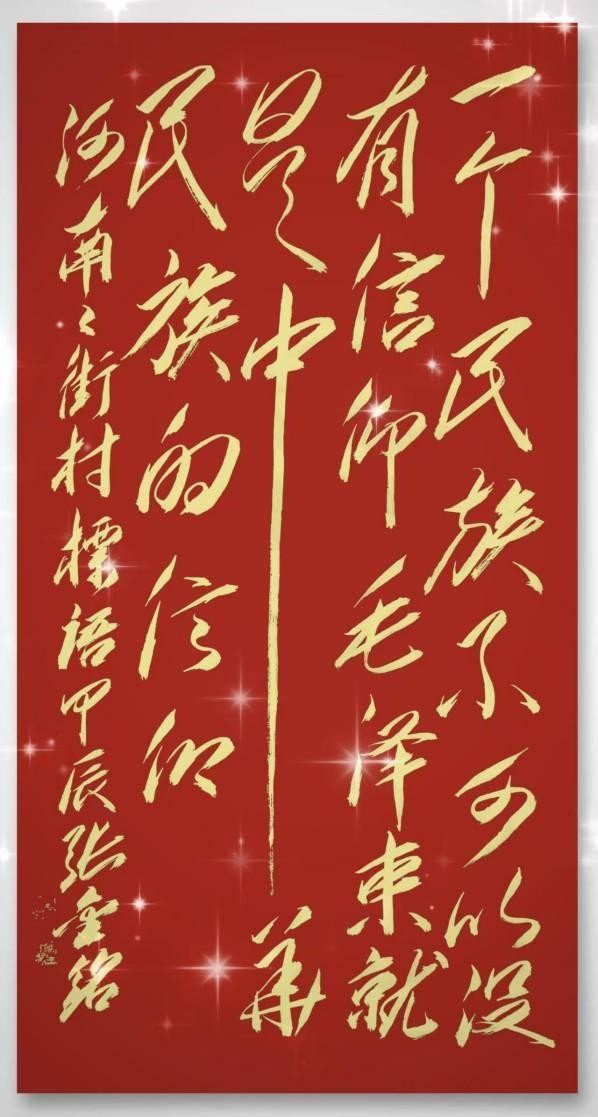 一个民族不可以没
有信仰毛泽东就
是中华
民族的信仰
河南々街村标语甲辰张金铭